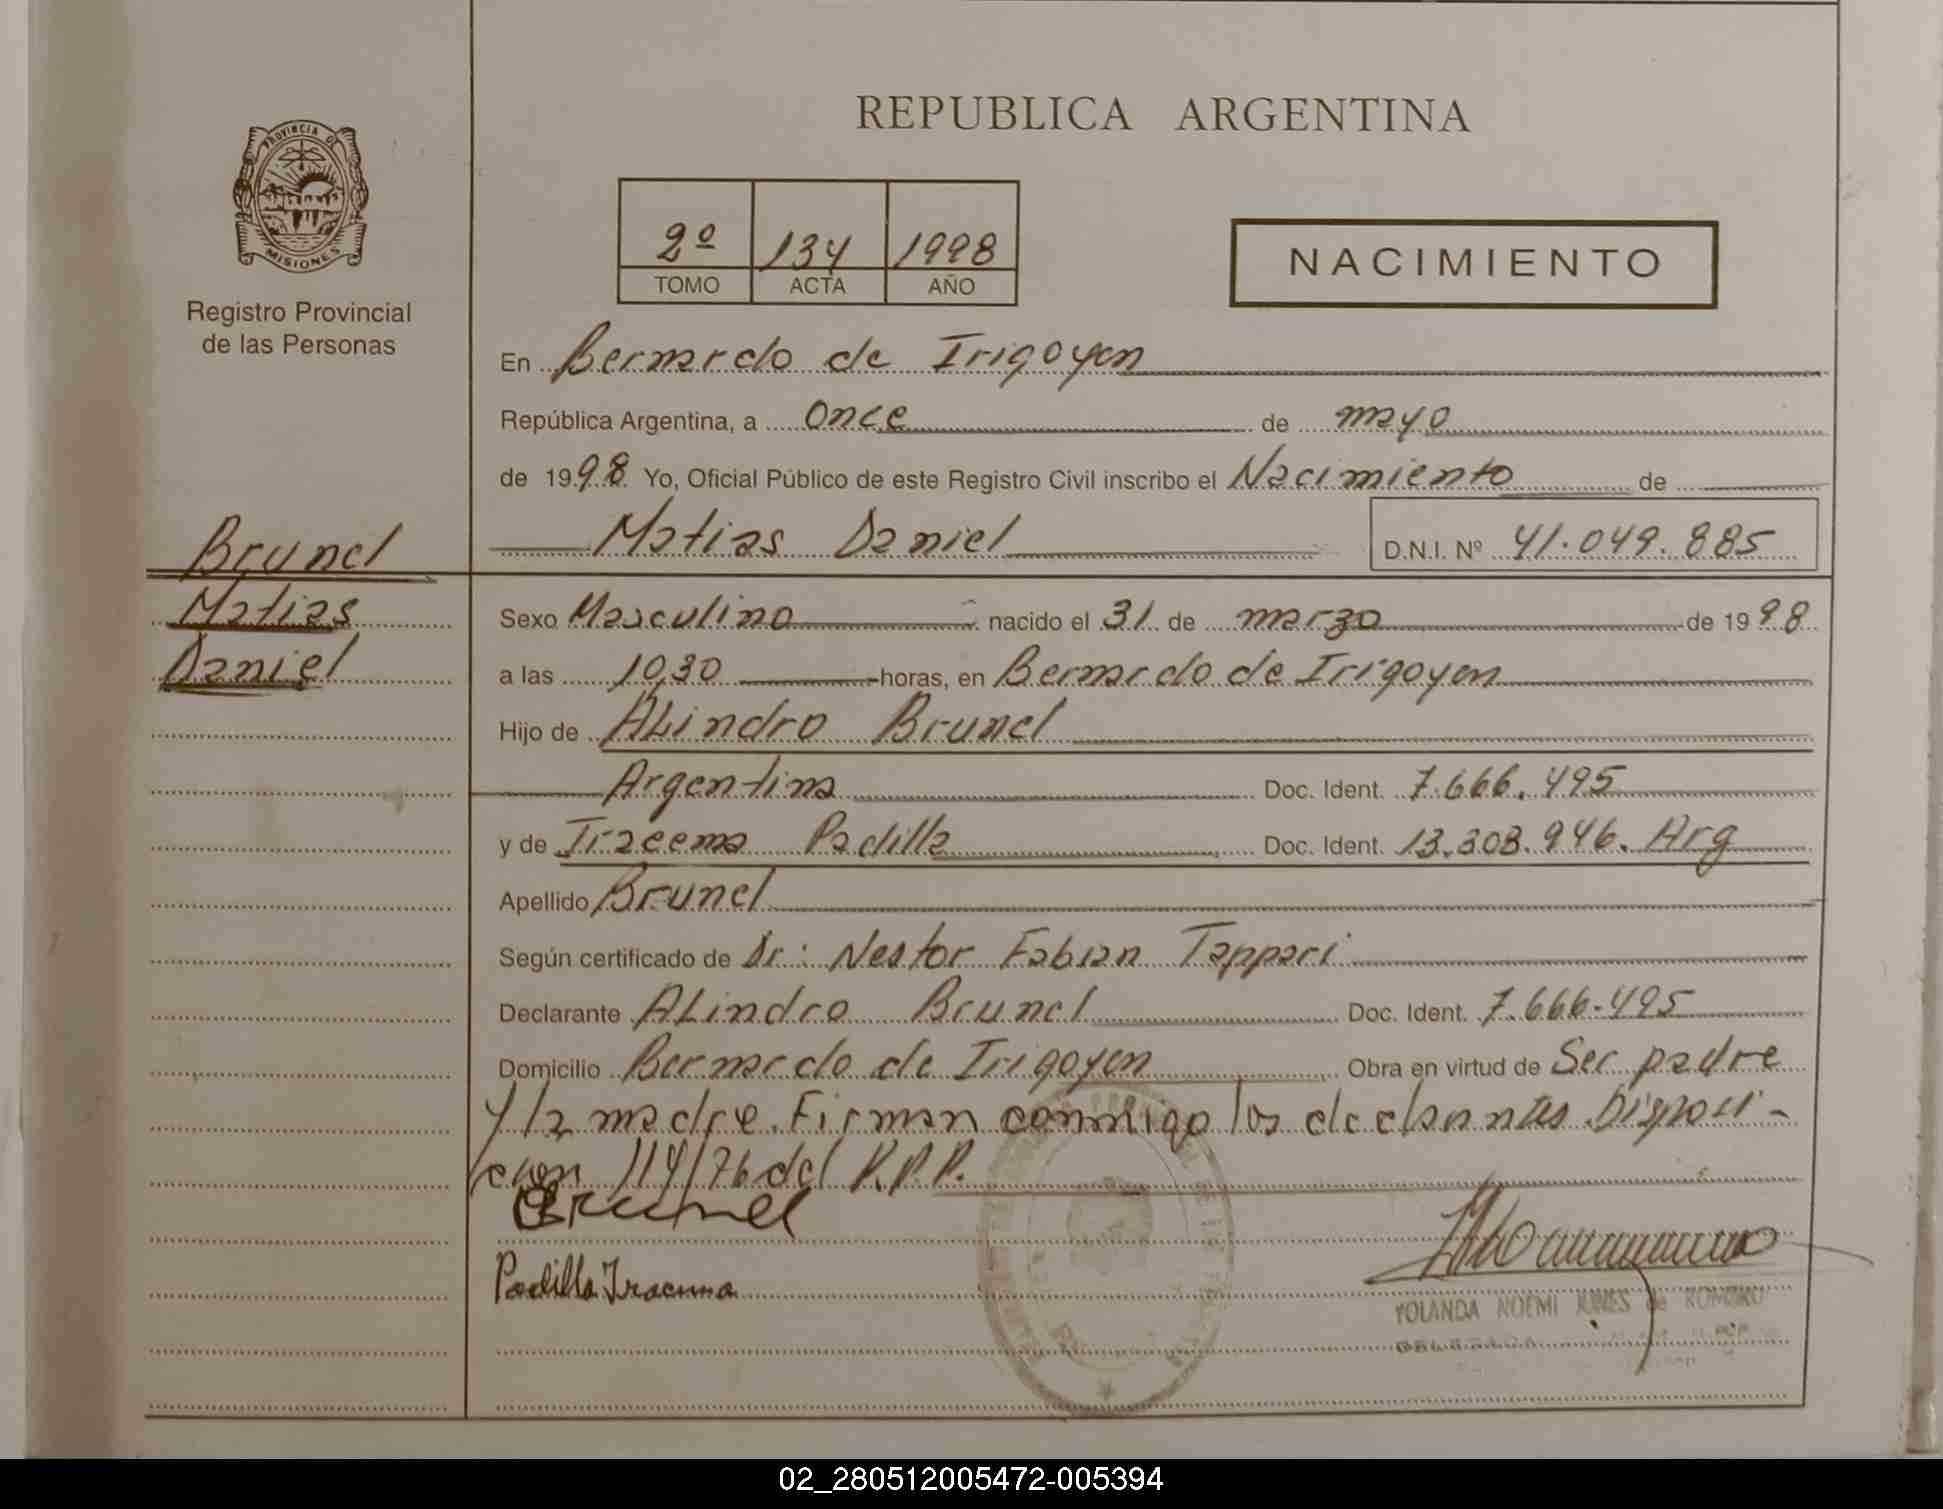 REPUBLICA ARGENTINA
PROVINCIA DE
MISIONES
Registro Provincial
de las Personas
2º 134 1998
TOMO ACTA AÑO
NACIMIENTO
En Bernardo de Irigoyen
República Argentina, a once de mayo
de 1998 Yo, Oficial Público de este Registro Civil inscribo el Nacimiento de
Matias Daniel D.N.I. Nº 41.049.885
Brunel
Matias
Daniel
Sexo Masculino nacido el 31 de marzo de 1998
a las 10,30 horas, en Bernardo de Irigoyen
Hijo de ALindro Brunel
Argentina Doc. Ident. 7.666.495
y de Iraeema Padilla Doc. Ident. 13.303.946. Arg
Apellido Brunel
Según certificado de Dr: Nestor Fabian Tappari
Declarante ALindro Brunel Doc. Ident. 7.666.495
Domicilio Bernardo de Irigoyen Obra en virtud de Ser padre
y la madre. Firman conmigo los declarantes Disposi-
cion 114/76 del R.P.P.
Brunel
Padilla Iracema
YOLANDA NOEMI de ROMERO
DELEGADA
02_280512005472-005394